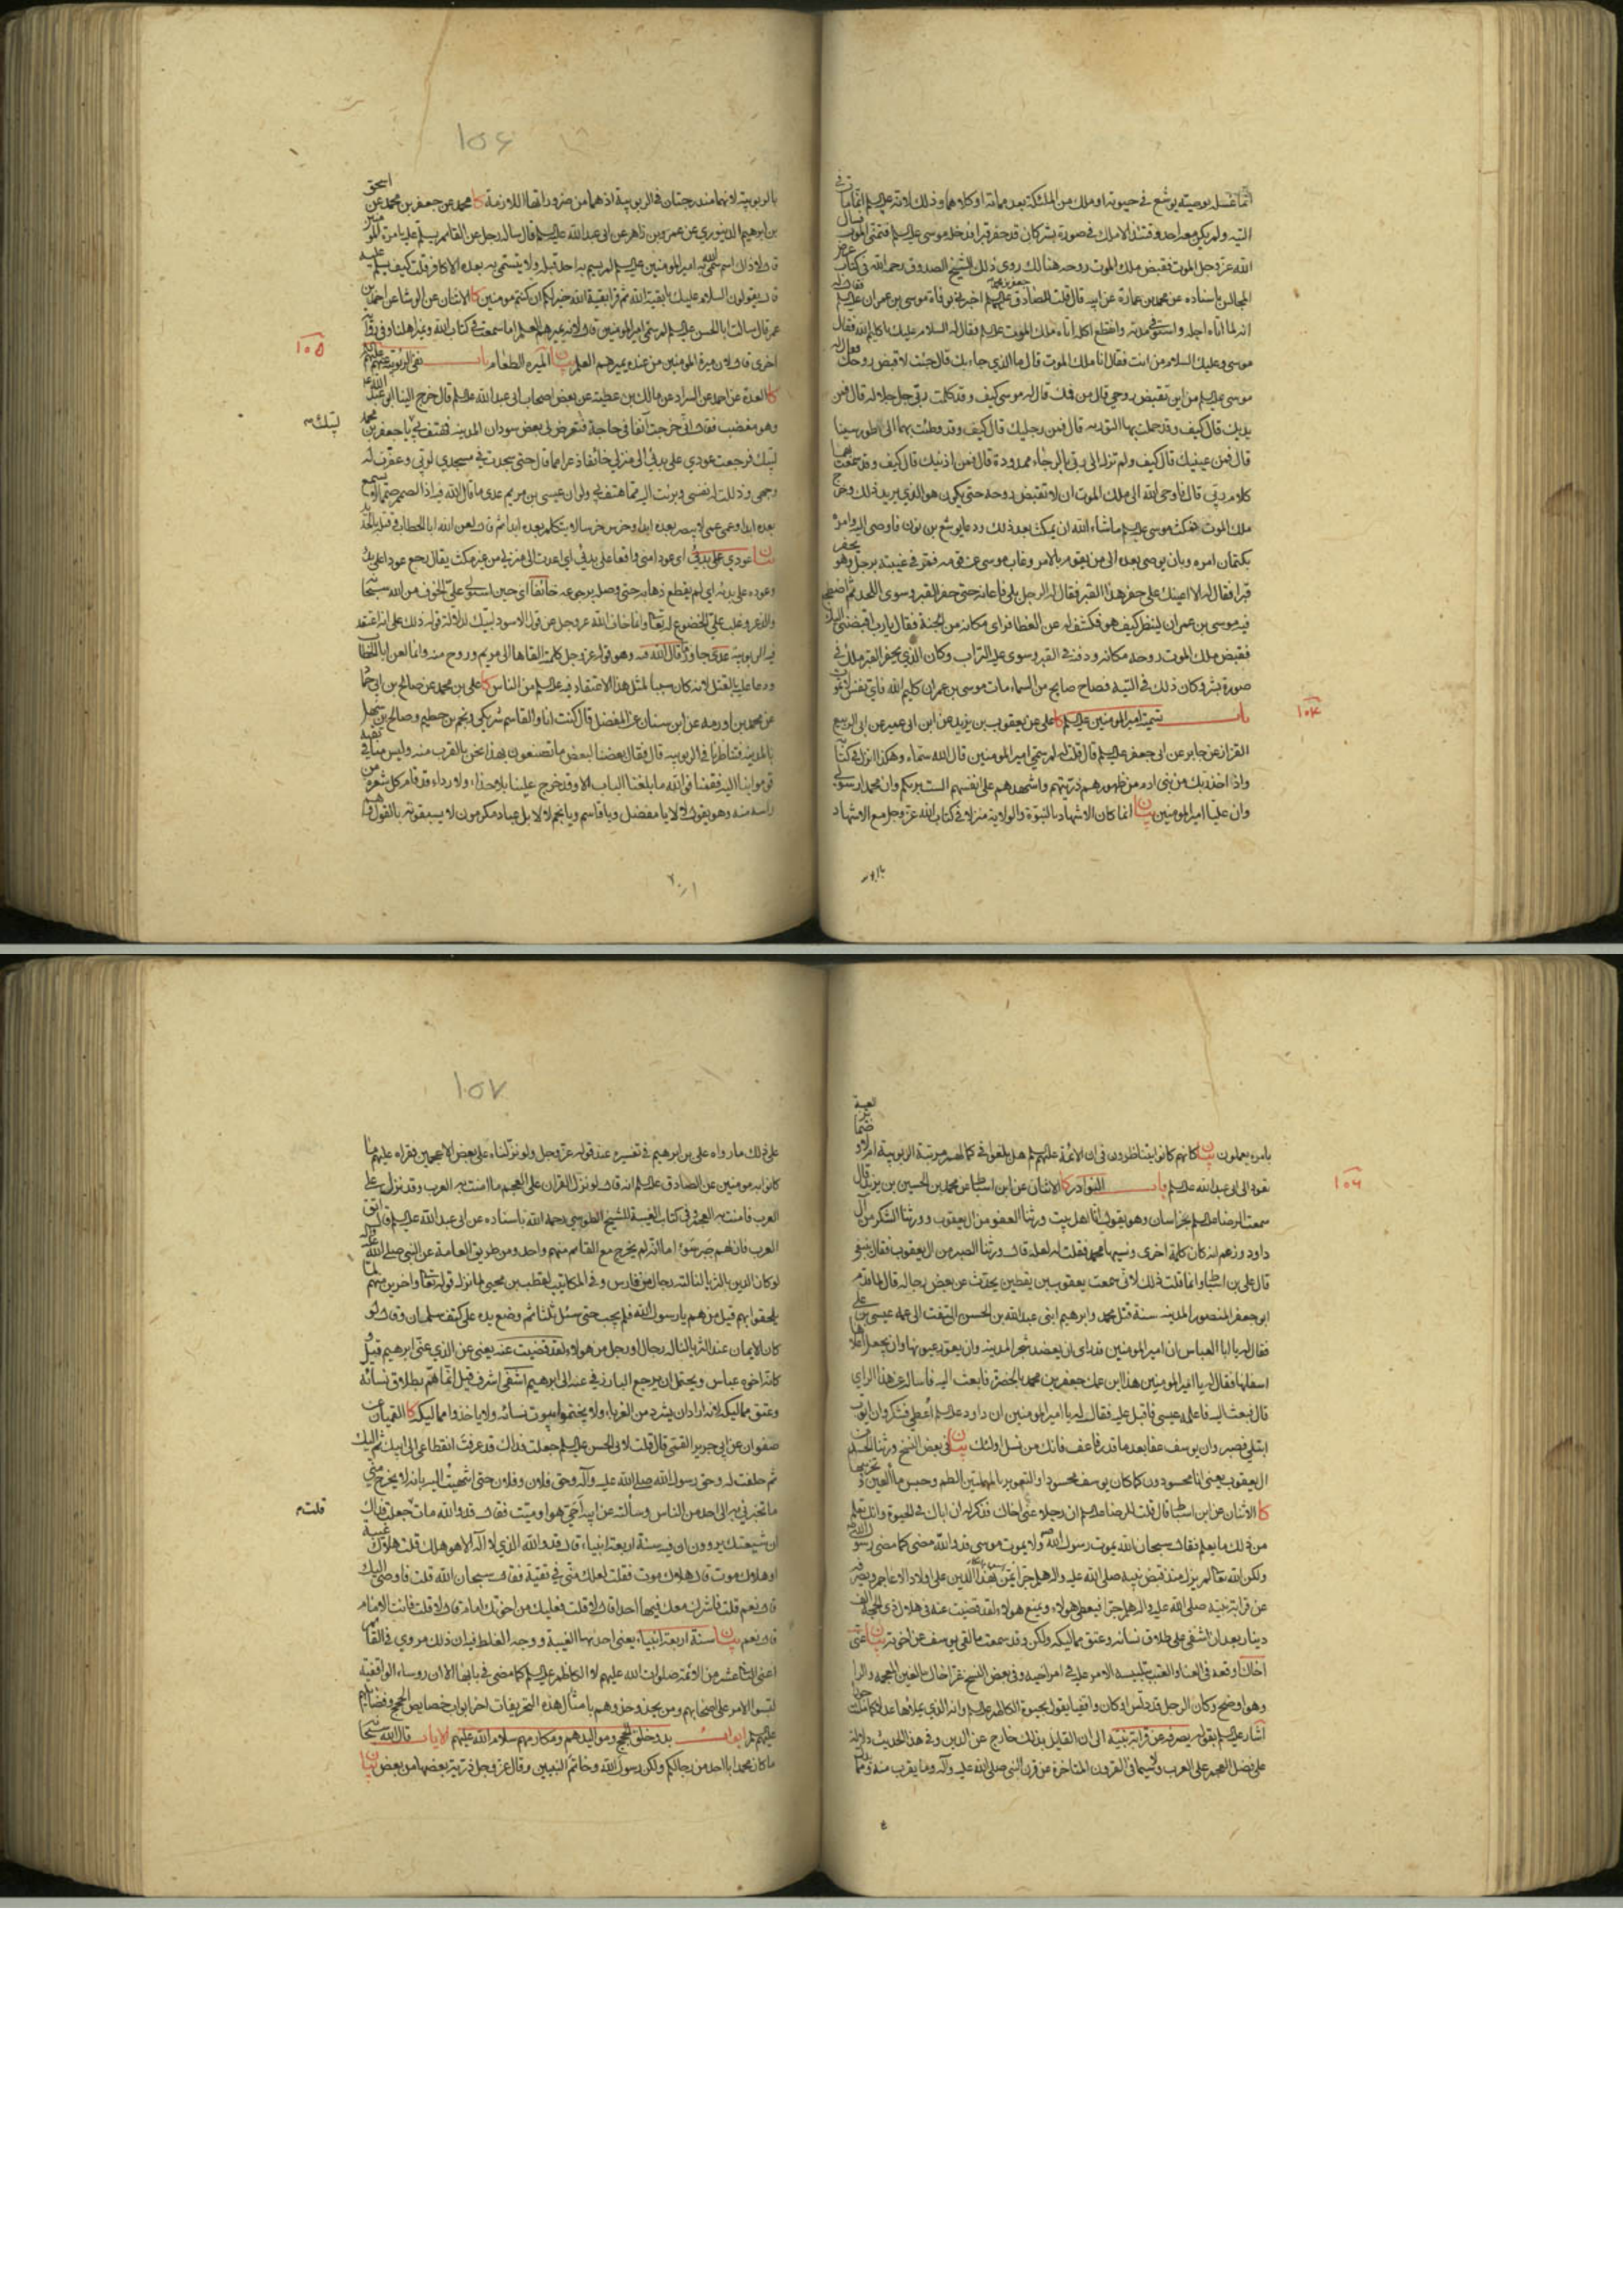 انما غسله بوصيته يوشع في حيوته او ملك من الملئكة بعد مماته او كلاهما وذلك لانه عليه السلم انما مات في
التيه ولم يكن معه احد وقتئذ الا ملك في صورة بشر كان قد حفر قبرا فدخله موسى عليه السلم فتمنى الموت فسال
الله عز وجل الموت فقبض ملك الموت روحه هنالك روى ذلك الشيخ الصدوق رحمه الله في كتاب عرض
المجالس باسناده عن محمد بن عمارة عن ابيه قال قلت للصادق جعفر بن محمد عليهم السلم اخبرني بوفاة موسى بن عمران عليه السلم فقال له
انه لما اتاه اجله واستوفى مدته وانقطع اكله اتاه ملك الموت عليه السلم فقال له السلام عليك يا كليم الله فقال
موسى وعليك السلام من انت فقال انا ملك الموت قال ما الذي جاء بك قال جئت لاقبض روحك فقال له
موسى عليه السلم من اين تقبض روحي قال من فمك قال له موسى كيف وقد كلمت ربي جل جلاله قال فمن
يديك قال كيف وقد حملت بهما التورية قال فمن رجليك قال كيف وقد وطئت بهما الى طور سينا
قال فمن عينيك قال كيف ولم تزل الى ربي بالرجاء ممدودة قال فمن اذنيك قال كيف وقد سمعت بهما
كلام ربي قال فاوحى الله الى ملك الموت ان لا تقبض روحه حتى يكون هو الذي يريد ذلك وخرج
ملك الموت فمكث موسى عليه السلم ما شاء الله ان يمكث بعد ذلك ودعا يوشع بن نون فاوصى اليه وامره
بكتمان امره وبان يوصي بعده الى من يقوم بالامر وغاب موسى عن قومه فمر في غيبته برجل وهو يحفر
قبرا فقال له الا اعينك على حفر هذا القبر فقال له الرجل بلى فاعانه حتى حفر القبر وسوى اللحد ثم اضطجع
فيه موسى بن عمران لينظر كيف هو فكشف له عن الغطا فراى مكانه من الجنة فقال يا رب اقبضني اليك
فقبض ملك الموت روحه مكانه ودفنه في القبر وسوى عليه التراب وكان الذي يحفر القبر ملك في
صورة بشر وكان ذلك في التيه فصاح صايح من السماء مات موسى بن عمران كليم الله فاي نفس لا تموت
١٠٤
باب تسمية امير المومنين عليه السلم كا علي عن يعقوب بن يزيد عن ابن ابي عمير عن ابي الربيع
القزاز عن جابر عن ابي جعفر عليه السلم قال قلت له لم سمي امير المومنين قال الله سماه وهكذا انزل في كتابه
واذ اخذ ربك من بني ادم من ظهورهم ذريتهم واشهدهم على انفسهم الست بربكم وان محمدا رسولي
وان عليا امير المومنين بيان انما كان الاشهاد بالنبوة والولاية منزلا في كتاب الله عز وجل مع الاشهاد
١٥۶
بالربوبية لانهما مندرجتان في الربوبية اذ هما من ضروراتها اللازمة كا محمد عن جعفر بن محمد عن اسحق
بن ابرهيم الدينوري عن عمر وبن زاهر عن ابي عبد الله عليه السلم قال ساله رجل عن القائم يسلم عليه بامرة المؤمنين
قال لا ذاك اسم سمى الله به امير المومنين عليه السلم لم يسم به احد قبله ولا يتسمى به بعده الا كافر قلت كيف يسلم عليه
قال يقولون السلام عليك يا بقية الله ثم قرا بقية الله خير لكم ان كنتم مومنين كا الاثنان عن الوشا عن احمد بن
عمر قال سالت ابا الحسن عليه السلم لم سمي امير المومنين قال لانه يميرهم العلم اما سمعت في كتاب الله ونمير اهلنا وفي رواية
اخرى قال لان ميرة المومنين من عنده يميرهم العلم بيان الميره الطعام باب نفي الربوبية عنهم عليهم السلم
١٠٥
كا العدة عن احمد عن السراد عن مالك بن عطية عن بعض اصحاب ابي عبد الله عليه السلم قال خرج الينا ابو عبد الله ع
وهو مغضب فقال اني خرجت آنفا في حاجة فتعرض لي بعض سودان المدينه فهتف بي يا جعفر بن محمد
لبيك
لبيك فرجعت عودي على بدئي الى منزلي خائفا ذعرا مما قال حتى سجدت في مسجدي لربي وعفرت له
وجهي وذللت له نفسي وبرئت اليه مما هتف بي ولو ان عيسى بن مريم عدى ما قال الله فيه اذا لصم صما لا يسمع
بعده ابدا وعمي عمى لا يبصر بعده ابدا وخرس خرسا لا يتكلم بعده ابدا ثم قال لعن الله ابا الخطاب وقتله بالحديد
بيان عودي على بدئي اي عودا مني واقعا على بدئي اي اعدت الى منزلي من غير مكث يقال رجع عودا على بدء
وعوده على بدئه اي لم يقطع ذهابه حتى وصل برجوعه خائفا اي حين استولى علي الخوف من الله سبحانه
والذعر وغلب علي الخضوع له تعالى وانما خاف الله عز وجل عن قول الاسود لبيك لدلالة قوله ذلك على انه اعتقد
فيه الربوبية عدى جاوز ما قال الله فيه وهو قوله عز وجل كلمته القاها الى مريم وروح منه وانما لعن ابا الخطاب
ودعا عليه بالقتل لانه كان سببا لمثل هذا الاعتقاد فيه عليه السلم من الناس كا علي بن محمد عن صالح بن ابي حماد
عن محمد بن اورمه عن ابن سنان عن المفضل قال كنت انا والقاسم شريكي ونجم بن حطيم وصالح بن سهل
بالمدينه فتناظرنا في الربوبيه قال فقال بعضنا لبعض ما تصنعون بهذا نحن بالقرب منه وليس منا في تقية
قوموا بنا اليه فقمنا فوالله ما بلغنا الباب الا وقد خرج علينا بلا حذاء ولا رداء قد قام كل شعرة من
راسه منه وهو يقول لا لا يا مفضل ويا قاسم ويا نجم لا لا بل عباد مكرمون لا يسبقونه بالقول وهم
بامره يعملون بيان كانهم كانوا يتناظرون في ان الائمة عليهم السلم هل بلغوا في كمالهم مرتبة الربوبية ام لا
١٠٦
نعود الى ابي عبد الله عليه السلم باب النوادر كا الاثنان عن ابن اسباط عن محمد بن الحسين بن يزيد قال
سمعت الرضا عليه السلم بخراسان وهو يقول انا اهل بيت ورثنا العفو من ال يعقوب وورثنا الشكر من آل
داود وزعم انه كان كلمة اخرى ونسيها محمد فقلت له لعله قال وورثنا الصبر من ال يعقوب فقال ينبغي
قال علي بن اسباط وانما قلت ذلك لاني سمعت يعقوب بن يقطين يحدث عن بعض رجاله قال لما قدم
ابو جعفر المنصور المدينه سنة قتل محمد وابرهيم ابني عبد الله بن الحسن التفت الى عمه عيسى بن علي
فقال له يا ابا العباس ان امير المومنين قد راى ان يعضد شجر المدينه وان يعور عيونها وان يجعل اعلاها
اسفلها فقال له يا امير المومنين هذا ابن عمك جعفر بن محمد بالحضرة فابعث اليه فاساله عن هذا الراي
قال فبعث اليه فاعلمه عيسى فاقبل عليه فقال له يا امير المومنين ان داود عليه السلم اعطي فشكر وان ايوب
ابتلي فصبر وان يوسف عفا بعد ما قدر فاعف فانك من نسل اولئك بيان في بعض النسخ ورثنا الحسد من
ال يعقوب يعني انا محسودون كما كان يوسف محسودا والتعوير بالمهملتين الطم وحبس ماء العين
كا الاثنان عن ابن اسباط قال قلت للرضا عليه السلم ان رجلا عنى اخاك فذكر له ان اباك في الحيوة وانك تعلم
من ذلك ما يعلم فقال سبحان الله يموت رسول الله ولا يموت موسى قد والله مضى كما مضى رسول الله
ولكن الله تعالى لم يزل منذ قبض نبيه صلى الله عليه واله هلم جرا يمن بهذا الدين على اولاد الاعاجم ويصرفه
عن قرابة نبيه صلى الله عليه واله هلم جرا فيعطي هولاء ويمنع هولاء لقد قضيت عنه في هلال ذي الحجة الف
دينار بعد ان اشفى على طلاق نسائه وعتق مماليكه ولكن قد سمعت ما لقي يوسف عن اخوته بيان عنى
اخاك اوقعه في العنا والتعب بتلبيسه الامر عليه في امر اخيه وفي بعض النسخ غر اخاك بالغين المعجمه والراء
وهو اوضح وكان الرجل قد دلس او كان واقفيا يقول بحيوة الكاظم عليه السلم وانه الذي يملاها عدلا كما ملئت جورا
اشار عليه السلم بقوله يصرفه عن قرابة نبيه الى ان القليل بذلك خارج عن الدين وفي هذا الحديث دلالة
على فضل العجم على العرب ولا سيما في القرون المتاخرة عن قرن النبي صلى الله عليه وآله وما يقرب منه ومما يدل
١٥٧
على ذلك ما رواه علي بن ابرهيم في تفسيره عند قوله عز وجل ولو نزلناه على بعض الاعجمين فقراه عليهم ما
كانوا به مومنين عن الصادق عليه السلم انه قال لو نزل القرآن على العجم ما امنت به العرب وقد نزل على
العرب فامنت به العجم وفي كتاب الغيبة للشيخ الطوسي رحمه الله باسناده عن ابي عبد الله عليه السلم قال اتق
العرب فان لهم خبر سوء اما انه لم يخرج مع القائم منهم واحد ومن طريق العامة عن النبي صلى الله عليه واله
لو كان الدين بالثريا لنالته رجال من فارس وفي المكاتيب لقطب بن محيي لما نزل قوله تعالى واخرين منهم لما
يلحقوا بهم قيل من هم يا رسول الله فلم يجب حتى سئل ثلثا ثم وضع يده على كتف سلمان وقال لو
كان الايمان عند الثريا لناله رجال او رجل من هولاء لقد قضيت عنه يعني عن الذي عنى ابرهيم قيل و
كانه اخوه عباس ويحتمل ان يرجع البارز في عنه الى ابرهيم اشفى اشرف قيل انما هم بطلاق نسائه
وعتق مماليكه لانه اراد ان يشرد من الغرماء ولا يختموا بيوت نسائه ولا ياخذوا مماليكه كا القميان عن
صفوان عن ابي جرير القمي قال قلت لابي الحسن عليه السلم جعلت فداك قد عرفت انقطاعي الى ابيك ثم اليك
ثم حلفت له وحق رسول الله صلى الله عليه وآله وحق فلان وفلان حتى انتهيت اليه بانه لا يخرج مني
ما تخبرني به الى احد من الناس وسالته عن ابيه احي هو او ميت فقال قد والله مات جعلت فداك
قلت
ان شيعتك يروون ان فيه سنة اربعة انبياء قال قد والله الذي لا اله الا هو هلك قلت هلاك غيبة
او هلاك موت قال هلاك موت فقلت لعلك مني في تقية فقال سبحان الله قلت فاوصى اليك
قال نعم قلت فاشرك معك فيها احدا قال لا قلت فعليك من اخوتك امام قال لا قلت فانت الامام
قال نعم بيان سنة اربعة انبياء يعني احدها الغيبة ووجه الغلط فيه ان ذلك مروي في القائم
اعني الثاني عشر من الائمة صلوات الله عليهم لا الكاظم عليه السلم كما مضى في بابه الا ان روساء الواقفية
لبسوا الامر على اصحابهم ومن يحذو حذوهم بامثال هذه التحريفات اخر ابواب خصايص الحجج وفضايلهم
عليهم السلم ابواب بدو خلق الحجج ومواليدهم ومكارمهم سلام الله عليهم الايات قال الله سبحانه
ما كان محمد ابا احد من رجالكم ولكن رسول الله وخاتم النبيين وقال عز وجل ذرية بعضها من بعض بيان